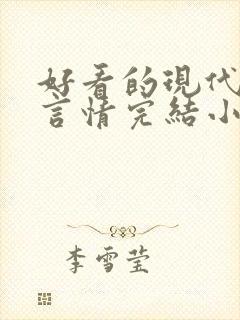 好看的現代
言情完結小
李雪莹